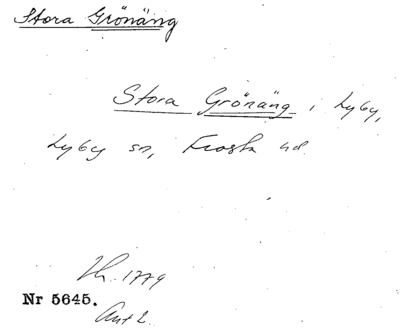 Stora Grönäng
Stora Grönäng i Lyby,
Lyby sn, Frosta hd.
1779
Nr 5645.